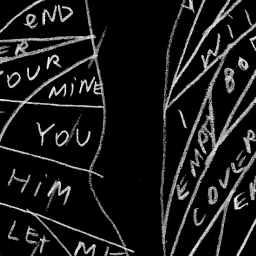 END
ER
OUR
MINE
YOU
HIM
LET
ME
WIL
I
EMPTY
COVER